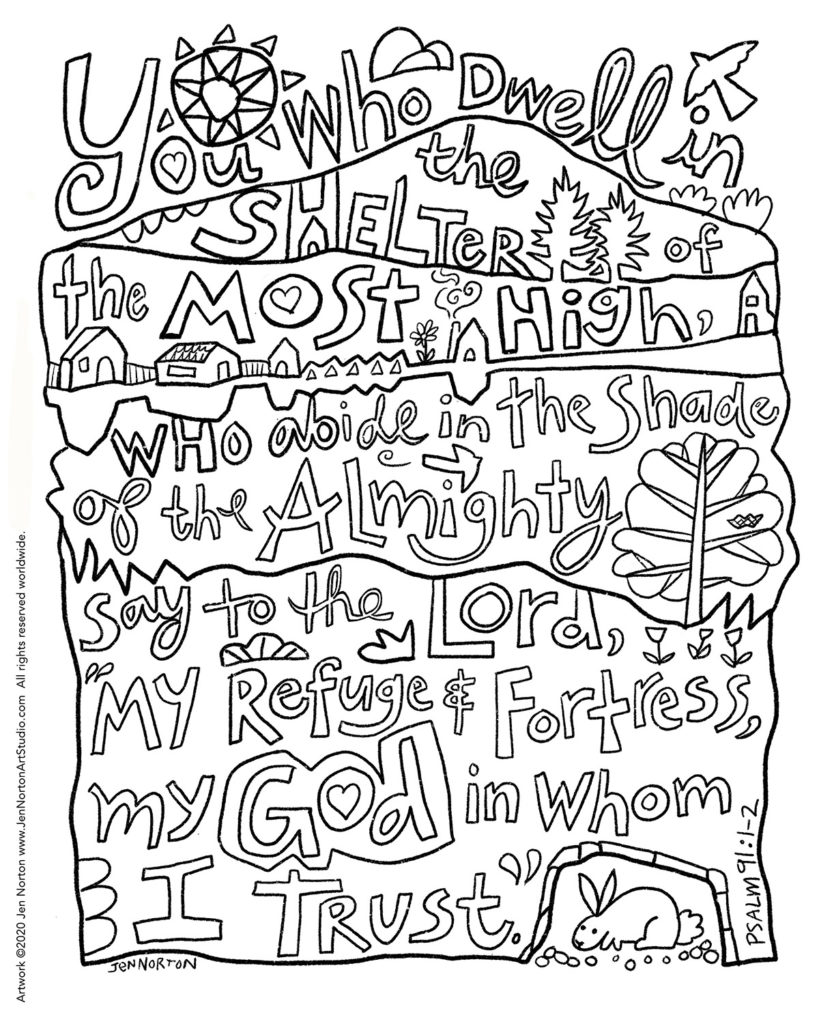 You Who Dwell in
the
SHELTER of
the MOST High,
WHO abide in the Shade
of the ALmighty
say to the Lord,
"MY Refuge & Fortress,
my God in Whom
I TRUST."
PSALM 91:1-2
JEN NORTON
Artwork ©2020 Jen Norton www.JenNortonArtStudio.com All rights reserved worldwide.